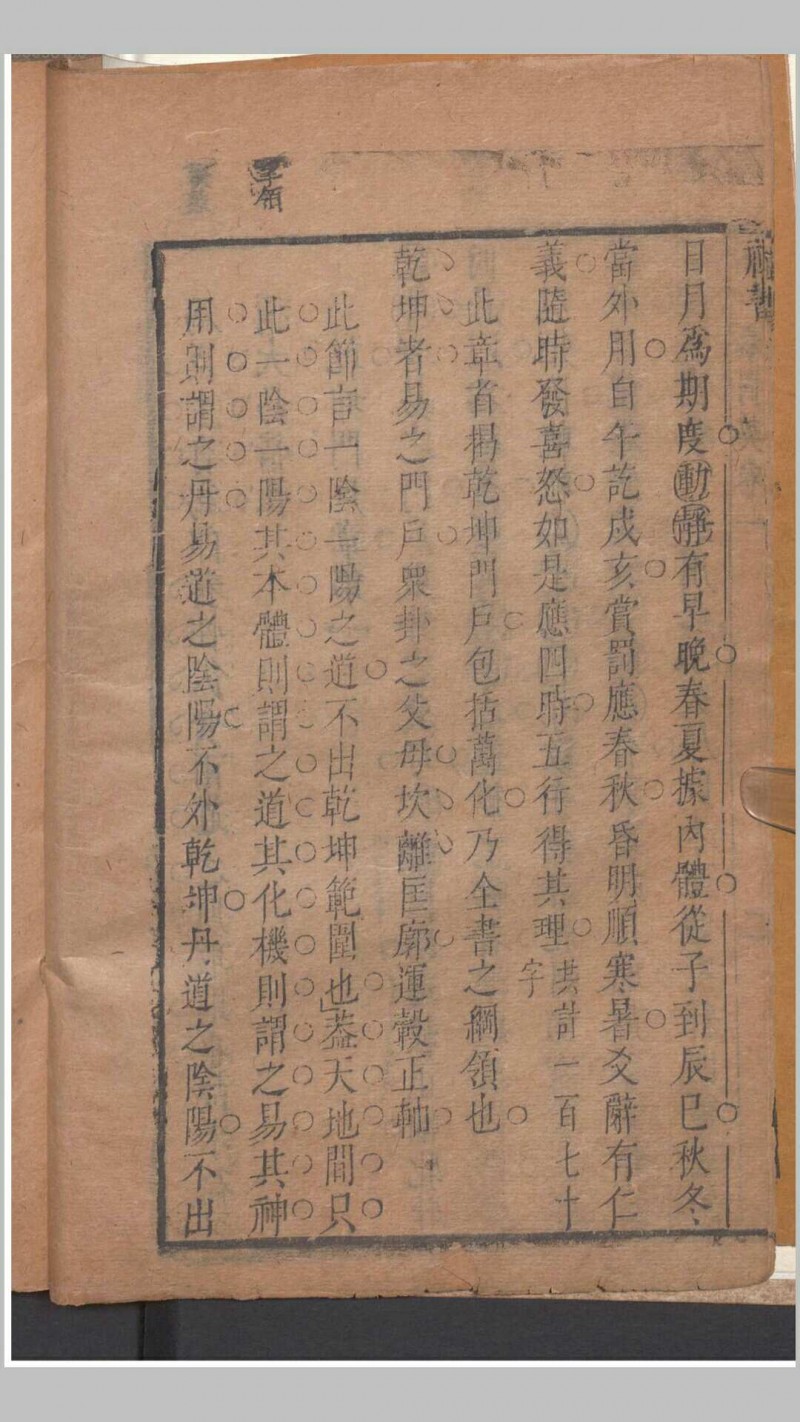 日月爲期度動靜有早晚春夏據內體從子到辰巳秋冬
當外用自午訖戍亥賞罰應春秋昏明順寒暑爻辭有仁
義隨時發喜怒如是應四時五行得其理
共計一百七十
字
此章首揭乾坤門戶包括萬化乃全書之綱領也
乾坤者易之門戶衆卦之父母坎離匡廓運轂正軸
此節言一陰一陽之道不出乾坤範圍也葢天地間只
此一陰一陽其本體則謂之道其化機則謂之易其神
用則謂之丹易道之陰陽不外乾坤丹道之陰陽不出